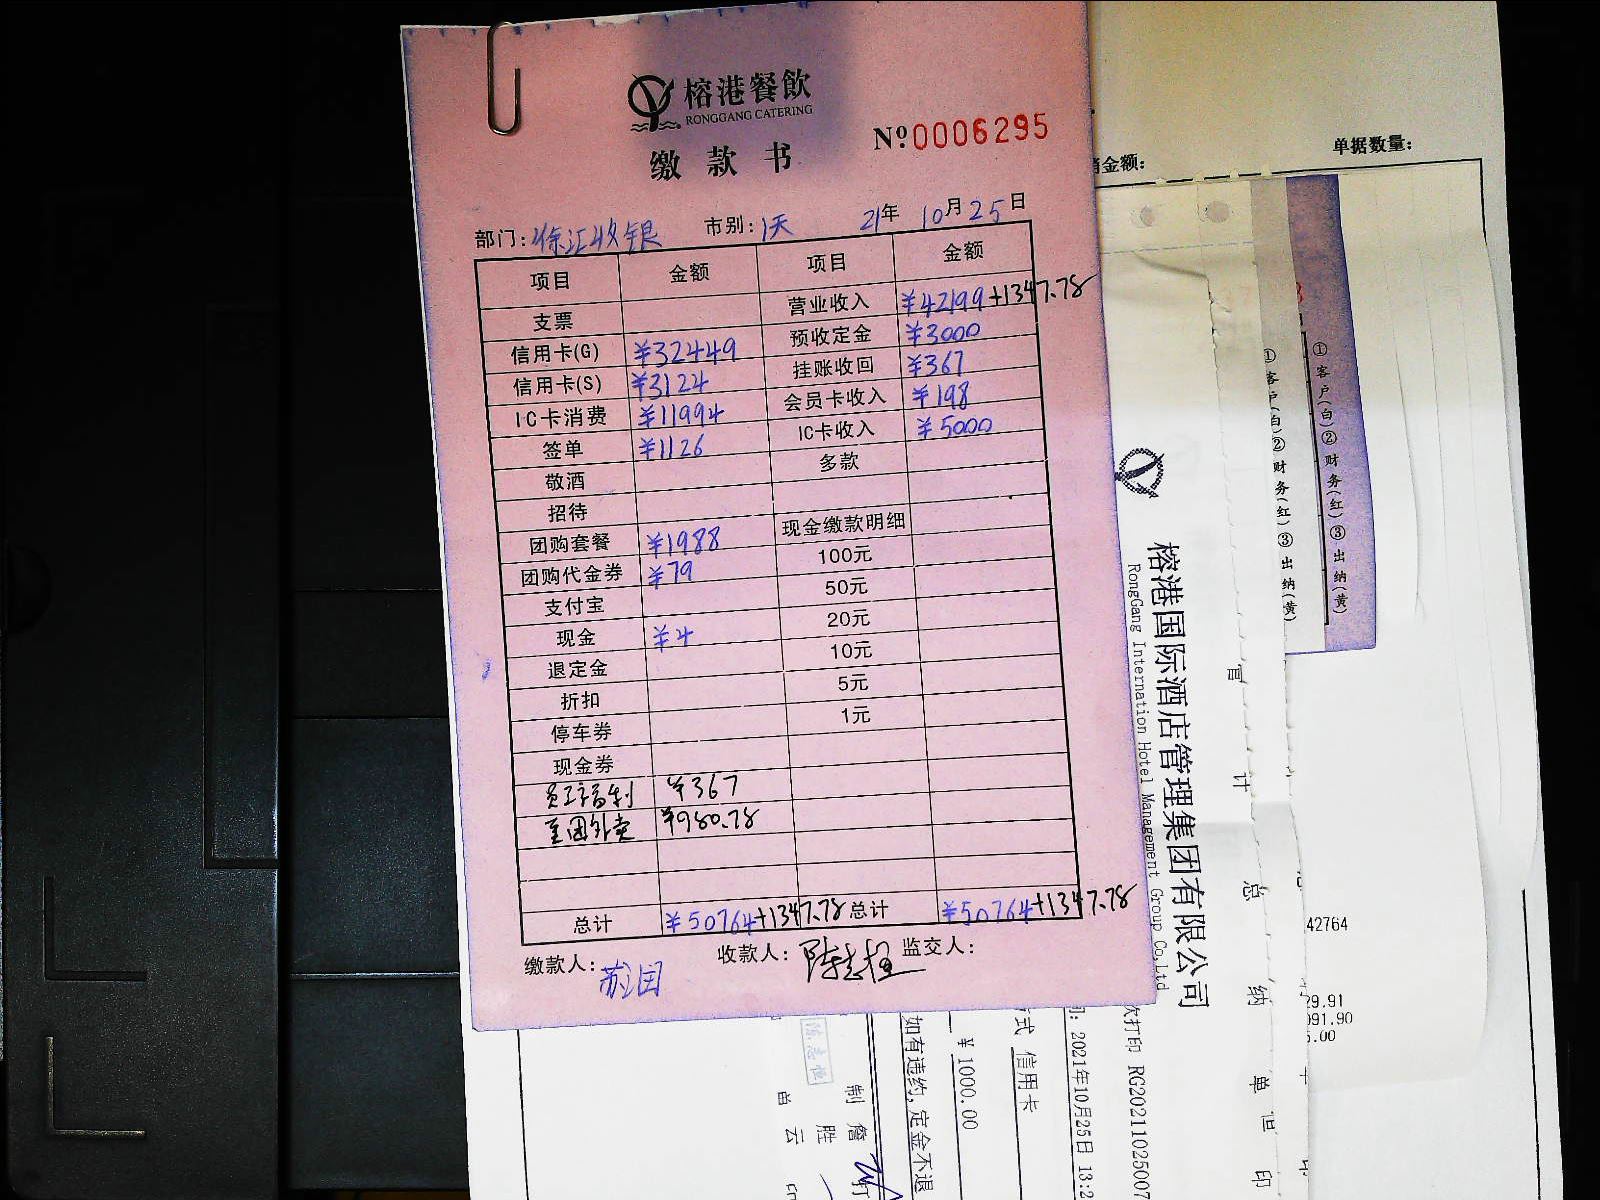 榕港餐飲
RONGGANG CATERING
缴款书
№0006295
部门:徐汇收银 市别:1天 21年10月25日
项目 金额 项目 金额
支票 营业收入 ¥42199+1347.78
信用卡(G) ¥32449 预收定金 ¥3000
信用卡(S) ¥3124 挂账收回 ¥367
IC卡消费 ¥11994 会员卡收入 ¥198
签单 ¥1126 IC卡收入 ¥5000
敬酒 多款
招待
团购套餐 ¥1988 现金缴款明细
团购代金券 ¥79 100元
支付宝 50元
现金 ¥4 20元
退定金 10元
折扣 5元
停车券 1元
现金券
员工福利 ¥367
美团外卖 ¥980.78
总计 ¥50764+1347.78 总计 ¥50764+1347.78
缴款人: 收款人:陈志恒 监交人:
销金额:
单据数量:
①客户(白)②财务(红)③出纳(黄)
①客户(白)②财务(红)③出纳(黄)
榕港国际酒店管理集团有限公司
RongGang International Hotel Management Group Co,Ltd
42764
29.91
991.90
5.00
次打印 RG20211025007
: 2021年10月25日 13:2
式 信用卡
¥ 1000.00
如有违约,定金不退
陈志恒